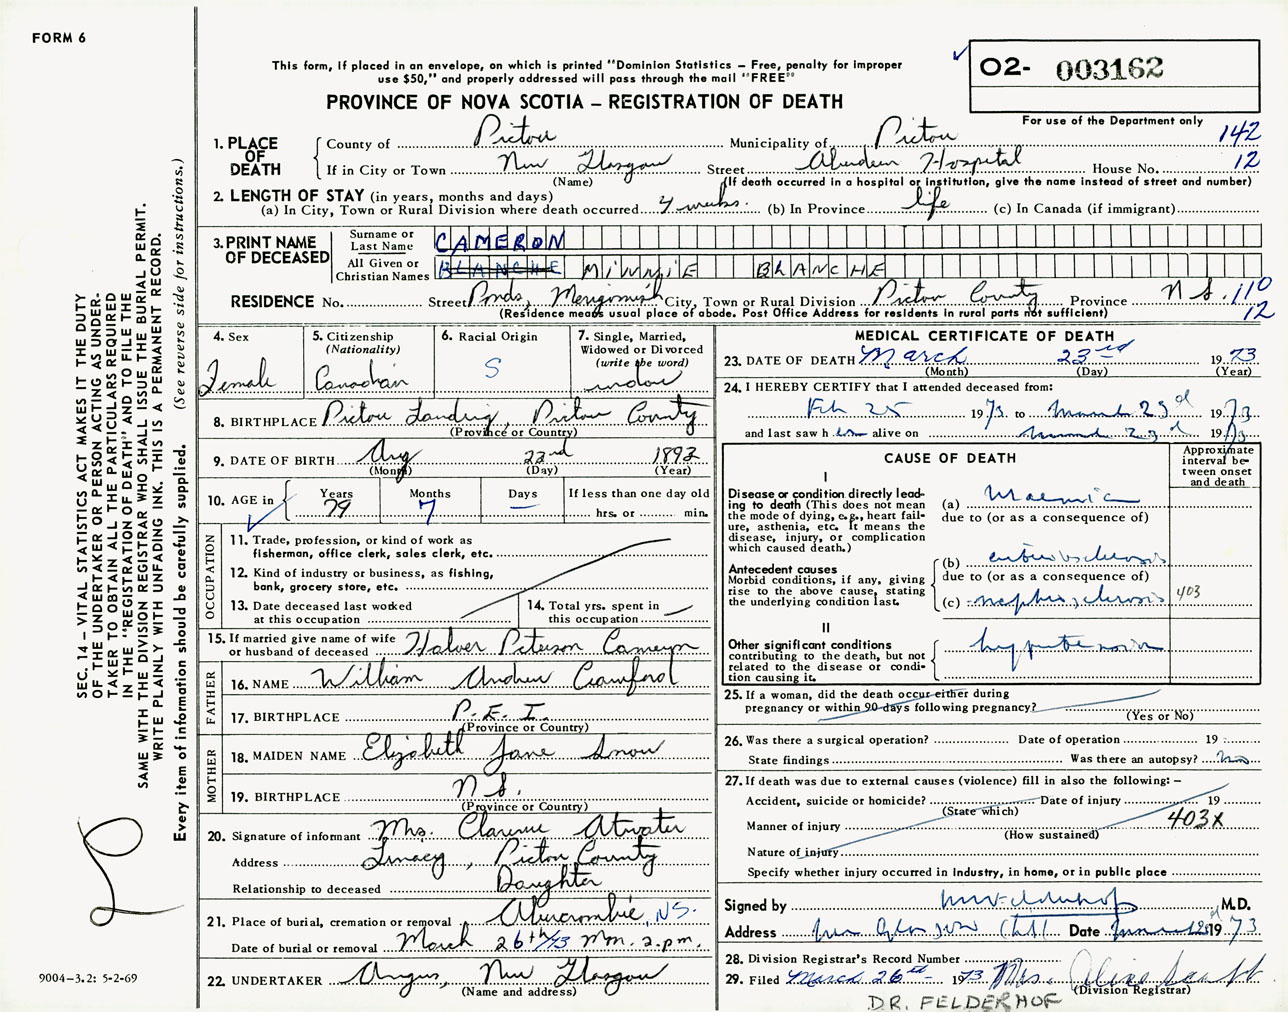 FORM 6
This form, if placed in an envelope, on which is printed "Dominion Statistics – Free, penalty for improper
use $50," and properly addressed will pass through the mail "FREE"
PROVINCE OF NOVA SCOTIA – REGISTRATION OF DEATH
O2- 003162
For use of the Department only
142
12
1. PLACE OF DEATH
County of Pictou Municipality of Pictou
If in City or Town New Glasgow Street Aberdeen Hospital House No.
(Name) (If death occurred in a hospital or institution, give the name instead of street and number)
2. LENGTH OF STAY (in years, months and days)
(a) In City, Town or Rural Division where death occurred 4 weeks. (b) In Province life (c) In Canada (if immigrant)
3. PRINT NAME OF DECEASED
Surname or Last Name CAMERON
All Given or Christian Names BLANCHE MINNIE BLANCHE
RESIDENCE No. Street Ponds, Merigomish City, Town or Rural Division Pictou County Province N S. 110
12
(Residence means usual place of abode. Post Office Address for residents in rural parts not sufficient)
4. Sex
Female
5. Citizenship
(Nationality)
Canadian
6. Racial Origin
S
7. Single, Married,
Widowed or Divorced
(write the word)
widow
8. BIRTHPLACE Pictou Landing, Pictou County
(Province or Country)
9. DATE OF BIRTH Aug 22nd 1893
(Month) (Day) (Year)
10. AGE in
Years Months Days If less than one day old
79 7 — hrs. or min.
OCCUPATION
11. Trade, profession, or kind of work as
fisherman, office clerk, sales clerk, etc.
12. Kind of industry or business, as fishing,
bank, grocery store, etc.
13. Date deceased last worked
at this occupation
14. Total yrs. spent in
this occupation
15. If married give name of wife
or husband of deceased Peterson Cameron
FATHER
16. NAME William Andrew Crawford
17. BIRTHPLACE P. E. I.
(Province or Country)
MOTHER
18. MAIDEN NAME Elizabeth Jane Snow
19. BIRTHPLACE N S.
(Province or Country)
20. Signature of informant Mrs. Clarence Atwater
Address Linacy, Pictou County
Relationship to deceased Daughter
21. Place of burial, cremation or removal Abercrombie, NS.
Date of burial or removal March 26th/73 Mon. 2 p.m.
22. UNDERTAKER Angus, New Glasgow
(Name and address)
MEDICAL CERTIFICATE OF DEATH
23. DATE OF DEATH March 23rd 1973
(Month) (Day) (Year)
24. I HEREBY CERTIFY that I attended deceased from:
Feb 25 1973 to March 23rd 1973
and last saw h er alive on March 23rd 1973
CAUSE OF DEATH
Approximate
interval be-
tween onset
and death
I
Disease or condition directly lead-
ing to death (This does not
mean the mode of dying, e.g., heart fail-
ure, asthenia, etc. It means the
disease, injury, or complication
which caused death.)
(a) Uraemia
due to (or as a consequence of)
(b)
due to (or as a consequence of)
(c) nephrosclerosis 403
Antecedent causes
Morbid conditions, if any, giving
rise to the above cause, stating
the underlying condition last.
II
Other significant conditions
contributing to the death, but not
related to the disease or condi-
tion causing it.
hypertension
25. If a woman, did the death occur either during
pregnancy or within 90 days following pregnancy?
(Yes or No)
26. Was there a surgical operation? Date of operation 19
State findings Was there an autopsy? no
27. If death was due to external causes (violence) fill in also the following: –
Accident, suicide or homicide? Date of injury 19
(State which)
Manner of injury 403X
(How sustained)
Nature of injury
Specify whether injury occurred in industry, in home, or in public place
Signed by M.D.
Address New Glasgow Date March 19 73
28. Division Registrar's Record Number
29. Filed March 26th 1973 Mrs.
(Division Registrar)
DR. FELDERHOF
SEC. 14 – VITAL STATISTICS ACT MAKES IT THE DUTY
OF THE UNDERTAKER OR PERSON ACTING AS UNDER-
TAKER TO OBTAIN ALL THE PARTICULARS REQUIRED
IN THE "REGISTRATION OF DEATH" AND TO FILE THE
SAME WITH THE DIVISION REGISTRAR WHO SHALL ISSUE THE BURIAL PERMIT.
WRITE PLAINLY WITH UNFADING INK. THIS IS A PERMANENT RECORD.
Every item of information should be carefully supplied. (See reverse side for instructions.)
9004-3.2: 5-2-69